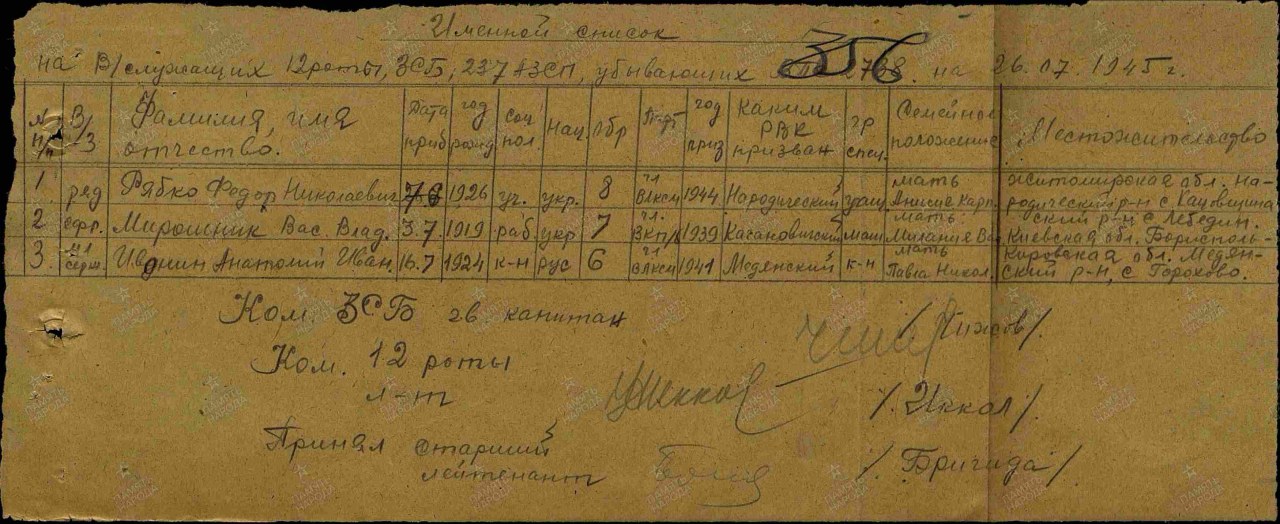 Именной список
на в/служащих 12 роты, 3СБ, 237 АЗСП, убывающих 356 на 26.07.1945 г.
№ п/п В/З Фамилия, имя отчество. Дата приб год рожд соц пол. Нац обр П-рт год приз каким РВК призван гр спец. Семейное положение Местожительство
1. ряд Рябко Федор Николаевич 1926 уч. укр. 8 чл ВЛКСМ 1944 Народический учащ мать Анисия Карп. Житомирская обл. Народический р-н с.
2 ефр. Мирошник Вас. Влад. 3.7. 1919 раб укр 7 чл. ВКП/б 1939 Кагановичский маш мать Мелания Киевская обл. Бориспольский р-н с Лебедин.
3. мл серж. Ивонин Анатолий Иван. 16.7 1924 к-н рус 6 чл ВЛКСМ 1941 Медянский к-н мать Павла Никол. Кировская обл. Медянский р-н, с Горохово.
Ком. 3СБ гв капитан / Чижов /.
Ком. 12 роты
л-т / Иккол /.
Принял старший
лейтенант / Бригида /